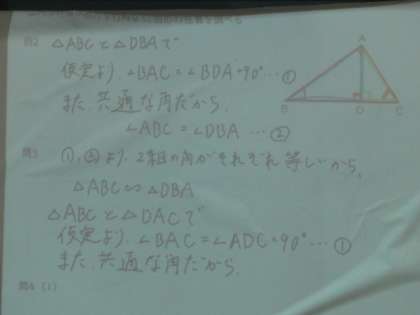 図形の性質を調べる
問2 △ABCと△DBAで
仮定より、∠BAC=∠BDA=90°…①
また、共通な角だから、
∠ABC=∠DBA …②
A
B
D
C
問3 ①,②より、2組の角がそれぞれ等しいから、
△ABC∽△DBA
△ABCと△DACで
仮定より、∠BAC=∠ADC=90°…①
また、共通な角だから、
問4 (1)